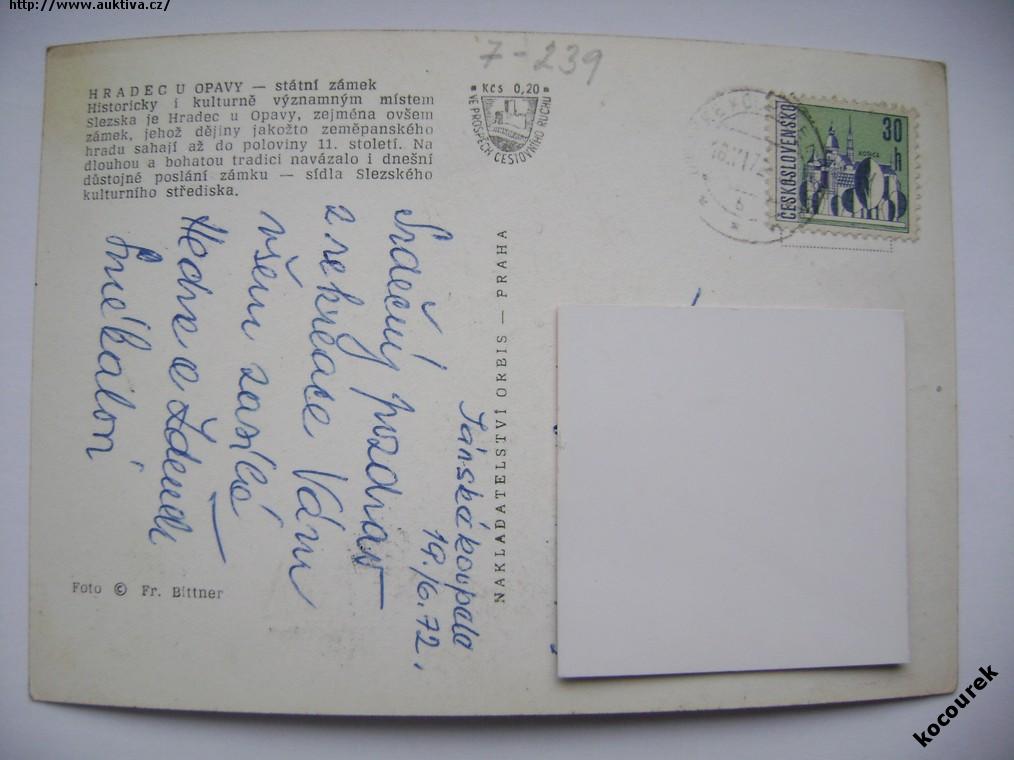 http://www.auktiva.cz/
7-239
HRADEC U OPAVY — státní zámek
Historicky i kulturně významným místem
Slezska je Hradec u Opavy, zejména ovšem
zámek, jehož dějiny jakožto zeměpanského
hradu sahají až do poloviny 11. století. Na
dlouhou a bohatou tradici navázalo i dnešní
důstojné poslání zámku — sídla Slezského
kulturního střediska.
Kčs 0,20
VE PROSPĚCH CESTOVNÍHO RUCHU
ČESKOSLOVENSKO
30
h
Jánské koupele
19./6.72.
Srdečný pozdrav
z rekreace Vám
všem zasílá
Smékalovi
NAKLADATELSTVÍ ORBIS — PRAHA
Foto © Fr. Bittner
kocourek